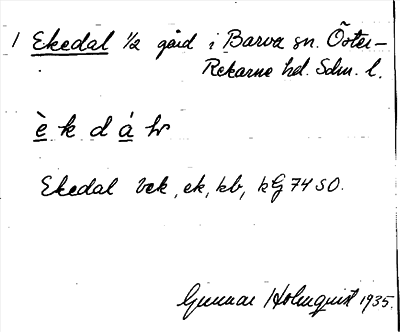 1 Ekedal 1/2 gård i Barva sn. Öster-
Rekarne hd. Sdm. l.
è k d á
Ekedal ek, kb, kG 74 SO.
Gunnar Holmquist 1935.